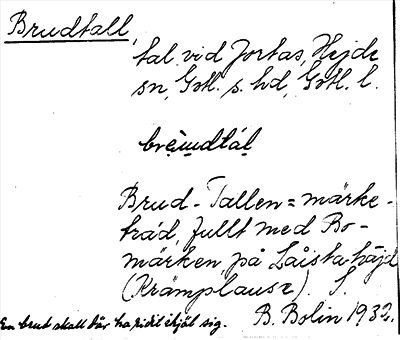 Brudtall,
tal. vid Jortas, Hejde
sn, Gotl. s. hd, Gotl. l.
Brud-Tallen = märke-
träd, fullt med Bo-
märken, på Låista-häjd
(Krämplausr). S.
En brud skall där ha ridit ihjäl sig.
B. Bolin 1932.